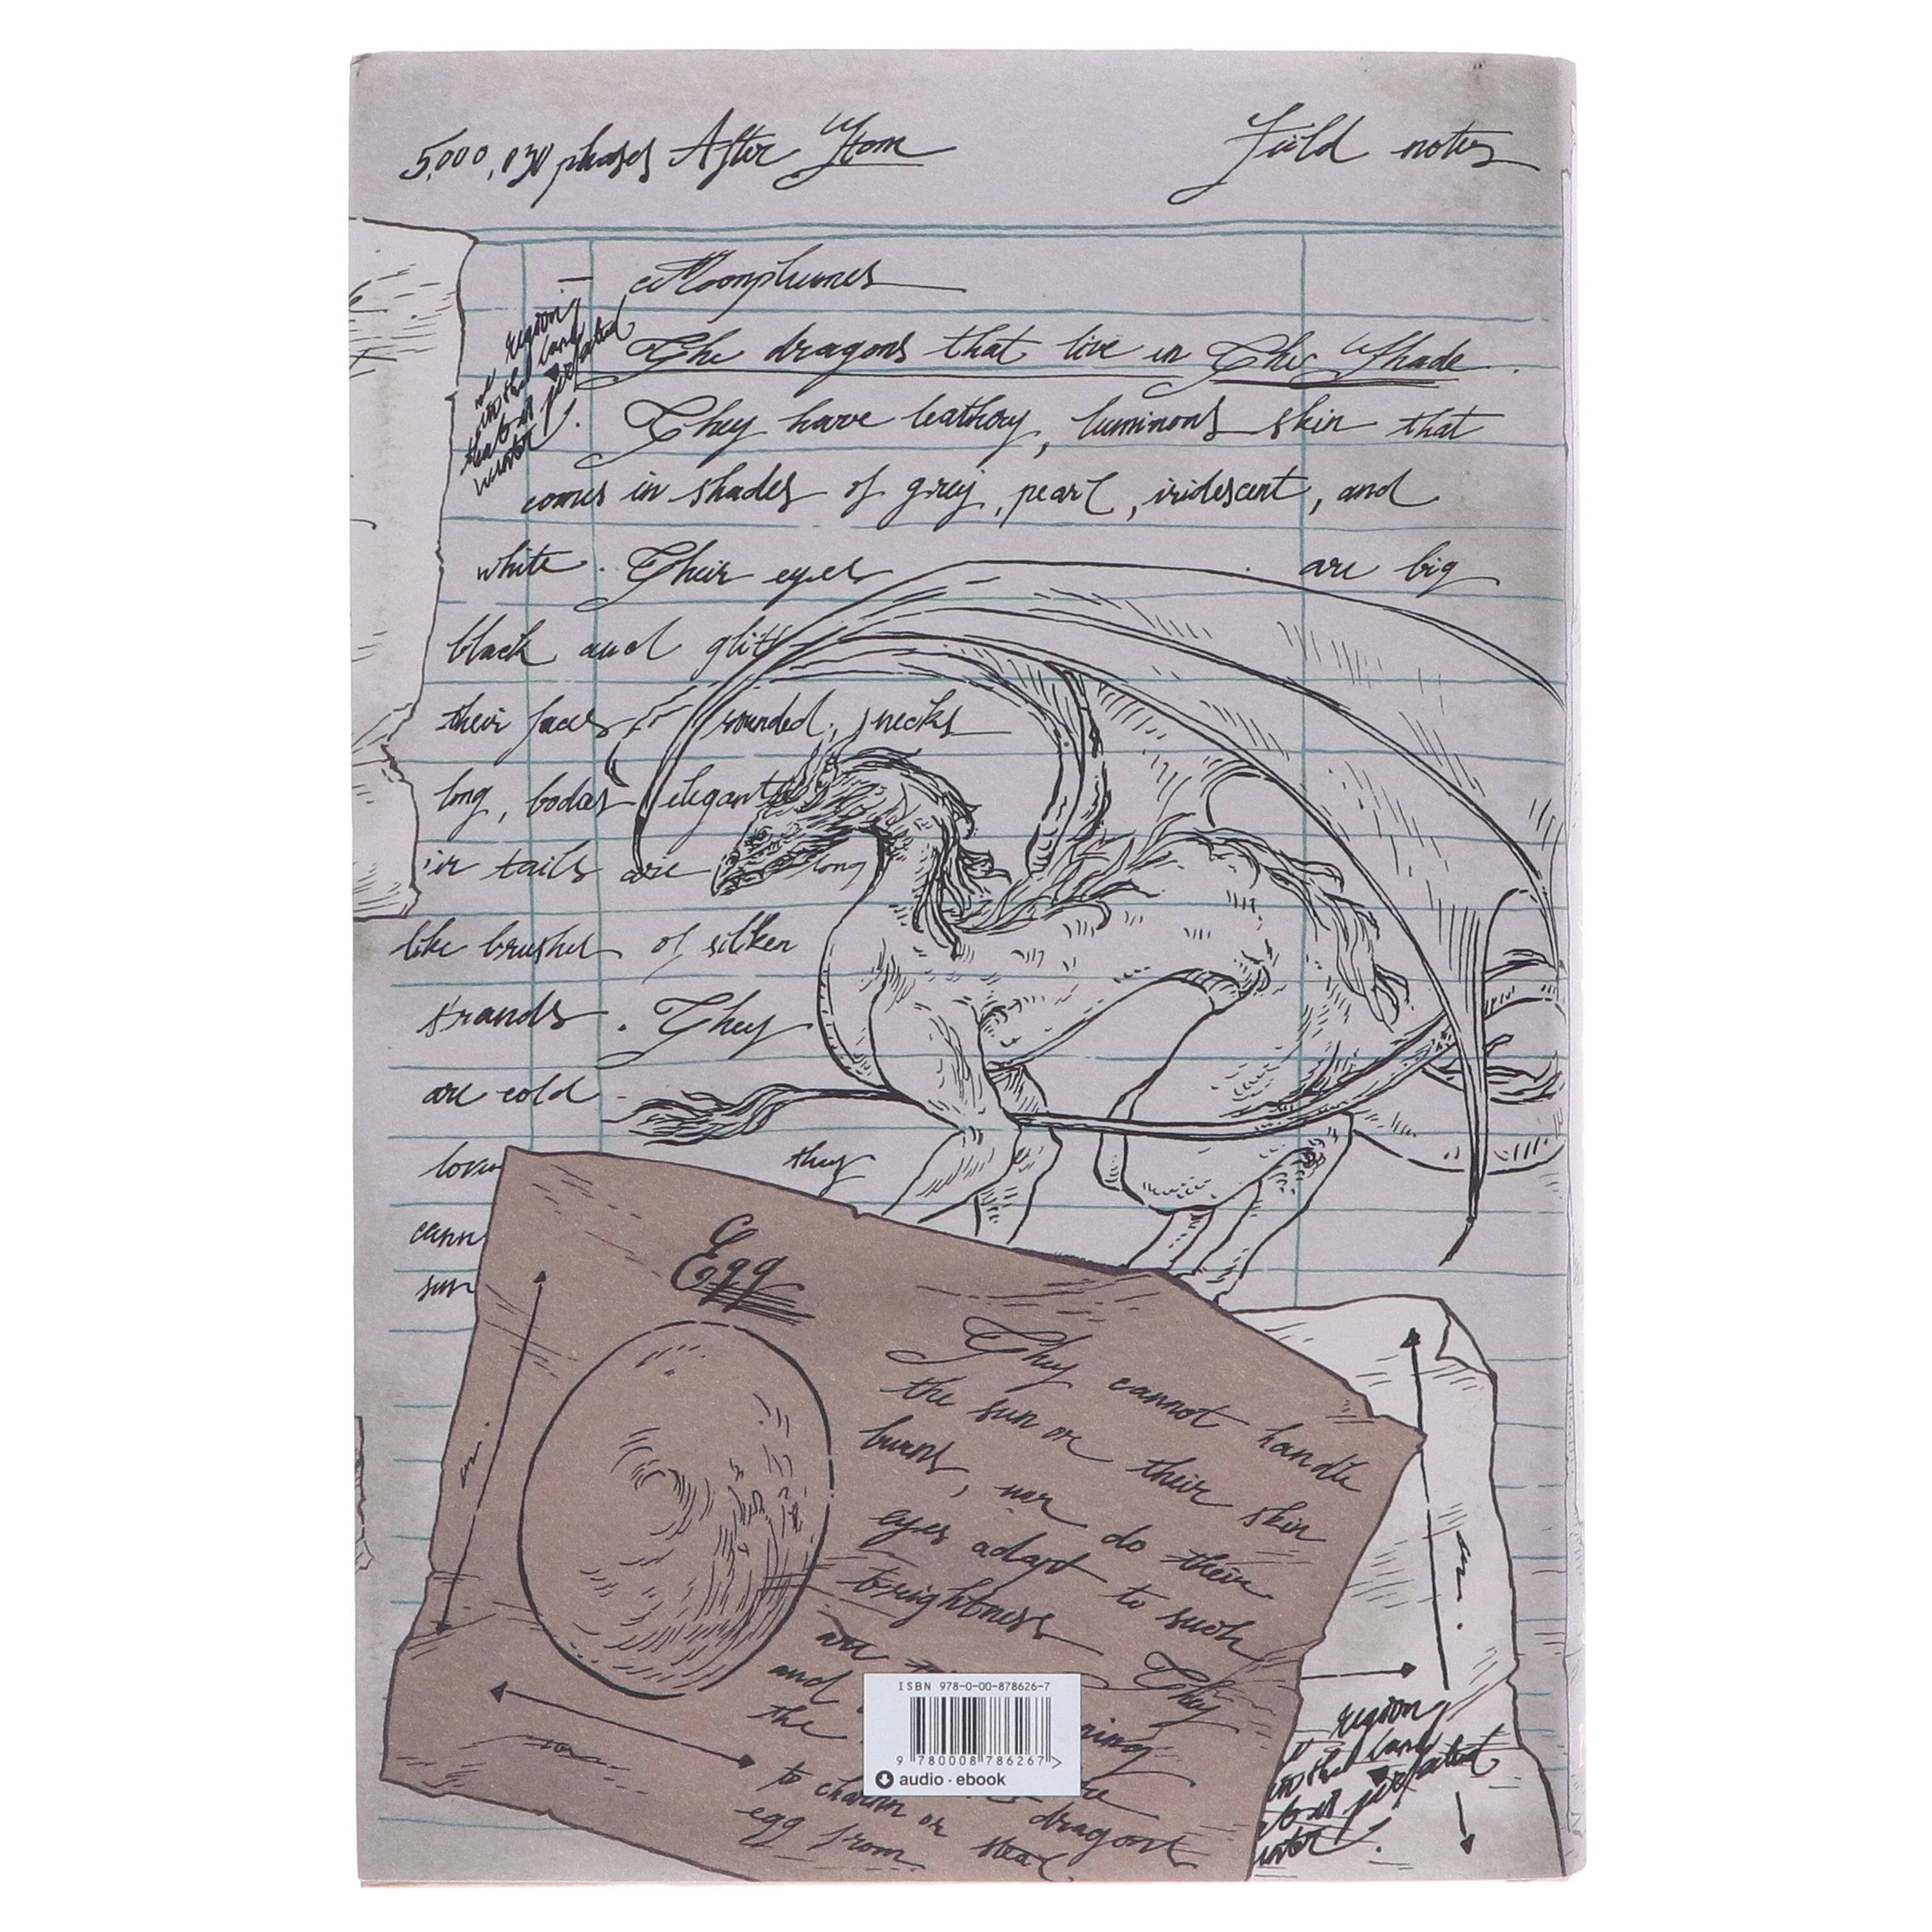 5,000,030 phases After Stone
Field notes
Moonplumes
The dragons that live in The Shade.
They have leathery, luminous skin that
comes in shades of grey, pearl, iridescent, and
white. Their eyes are big
black and glitt
their faces rounded, necks
long, bodies elegant
ir tails are long
like brushes of silken
strands. They
are cold
they
cann
sun
region
Egg
They cannot handle
the sun or their skin
burns, nor do their
eyes adapt to such
brightness They
are
and
the ning
to charm or dragons
egg from steal
region
ISBN 978-0-00-878626-7
9 780008 786267 >
audio · ebook